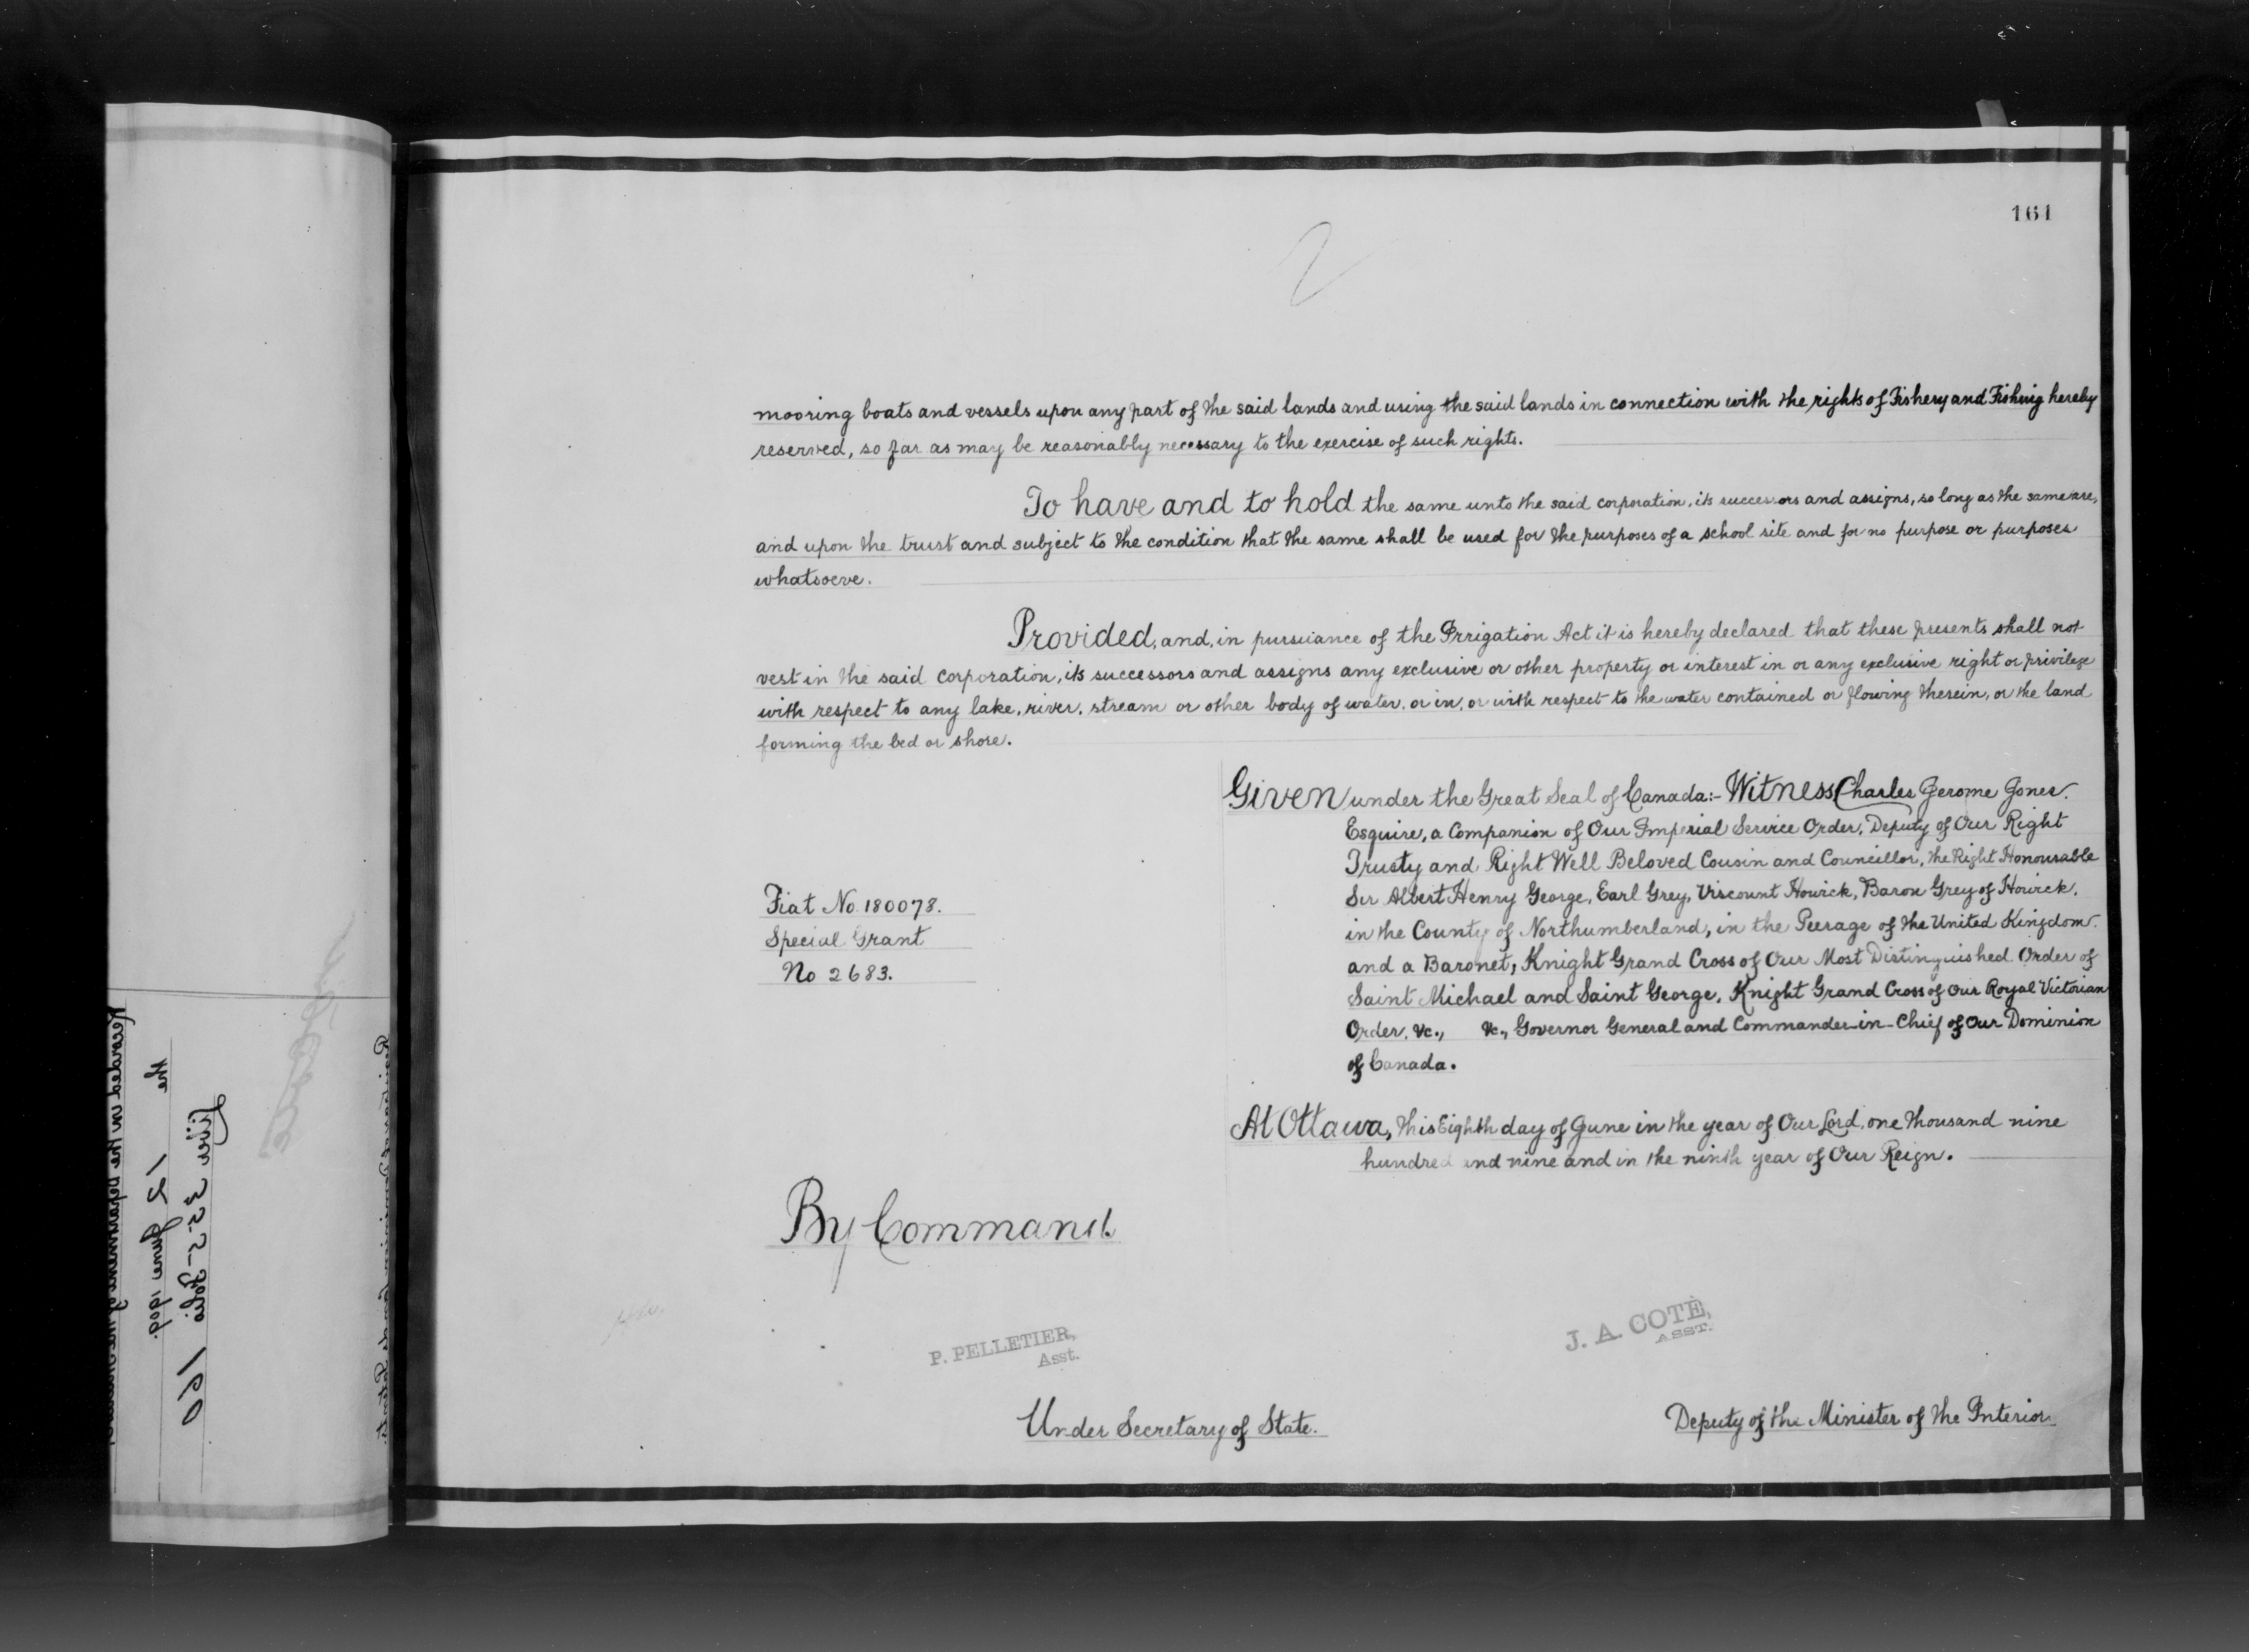 161
2
mooring boats and vessels upon any part of the said lands and using the said lands in connection with the rights of Fishery and Fishing hereby
reserved, so far as may be reasonably necessary to the exercise of such rights.
To have and to hold the same unto the said corporation, its successors and assigns, so long as the same are,
and upon the trust and subject to the condition that the same shall be used for the purposes of a school site and for no purpose or purposes
whatsoeve.
Provided, and, in pursuance of the Irrigation Act it is hereby declared that these presents shall not
vest in the said corporation, its successors and assigns any exclusive or other property or interest in or any exclusive right or privilege
with respect to any lake, river, stream or other body of water, or in, or with respect to the water contained or flowing therein, or the land
forming the bed or shore.
Given under the Great Seal of Canada:- Witness Charles Jerome Jones.
Esquire, a Companion of Our Imperial Service Order, Deputy of Our Right
Trusty and Right Well Beloved Cousin and Councillor, the Right Honourable
Sir Albert Henry George, Earl Grey, Viscount Howick, Baron Grey of Howick,
in the County of Northumberland, in the Peerage of the United Kingdom.
and a Baronet, Knight Grand Cross of Our Most Distinguished Order of
Saint Michael and Saint George, Knight Grand Cross of Our Royal Victorian
Order, &c., &c., Governor General and Commander-in-Chief of Our Dominion
of Canada.
Fiat No. 180078.
Special Grant
No 2683.
At Ottawa, this Eighth day of June in the year of Our Lord, one thousand nine
hundred and nine and in the ninth year of Our Reign.
By Command.
P. PELLETIER,
Asst.
Under Secretary of State.
J. A. COTÈ,
ASST.
Deputy of the Minister of the Interior.
Liber 355 Folio 160
the 12 June 1909.
Recorded in the Department of